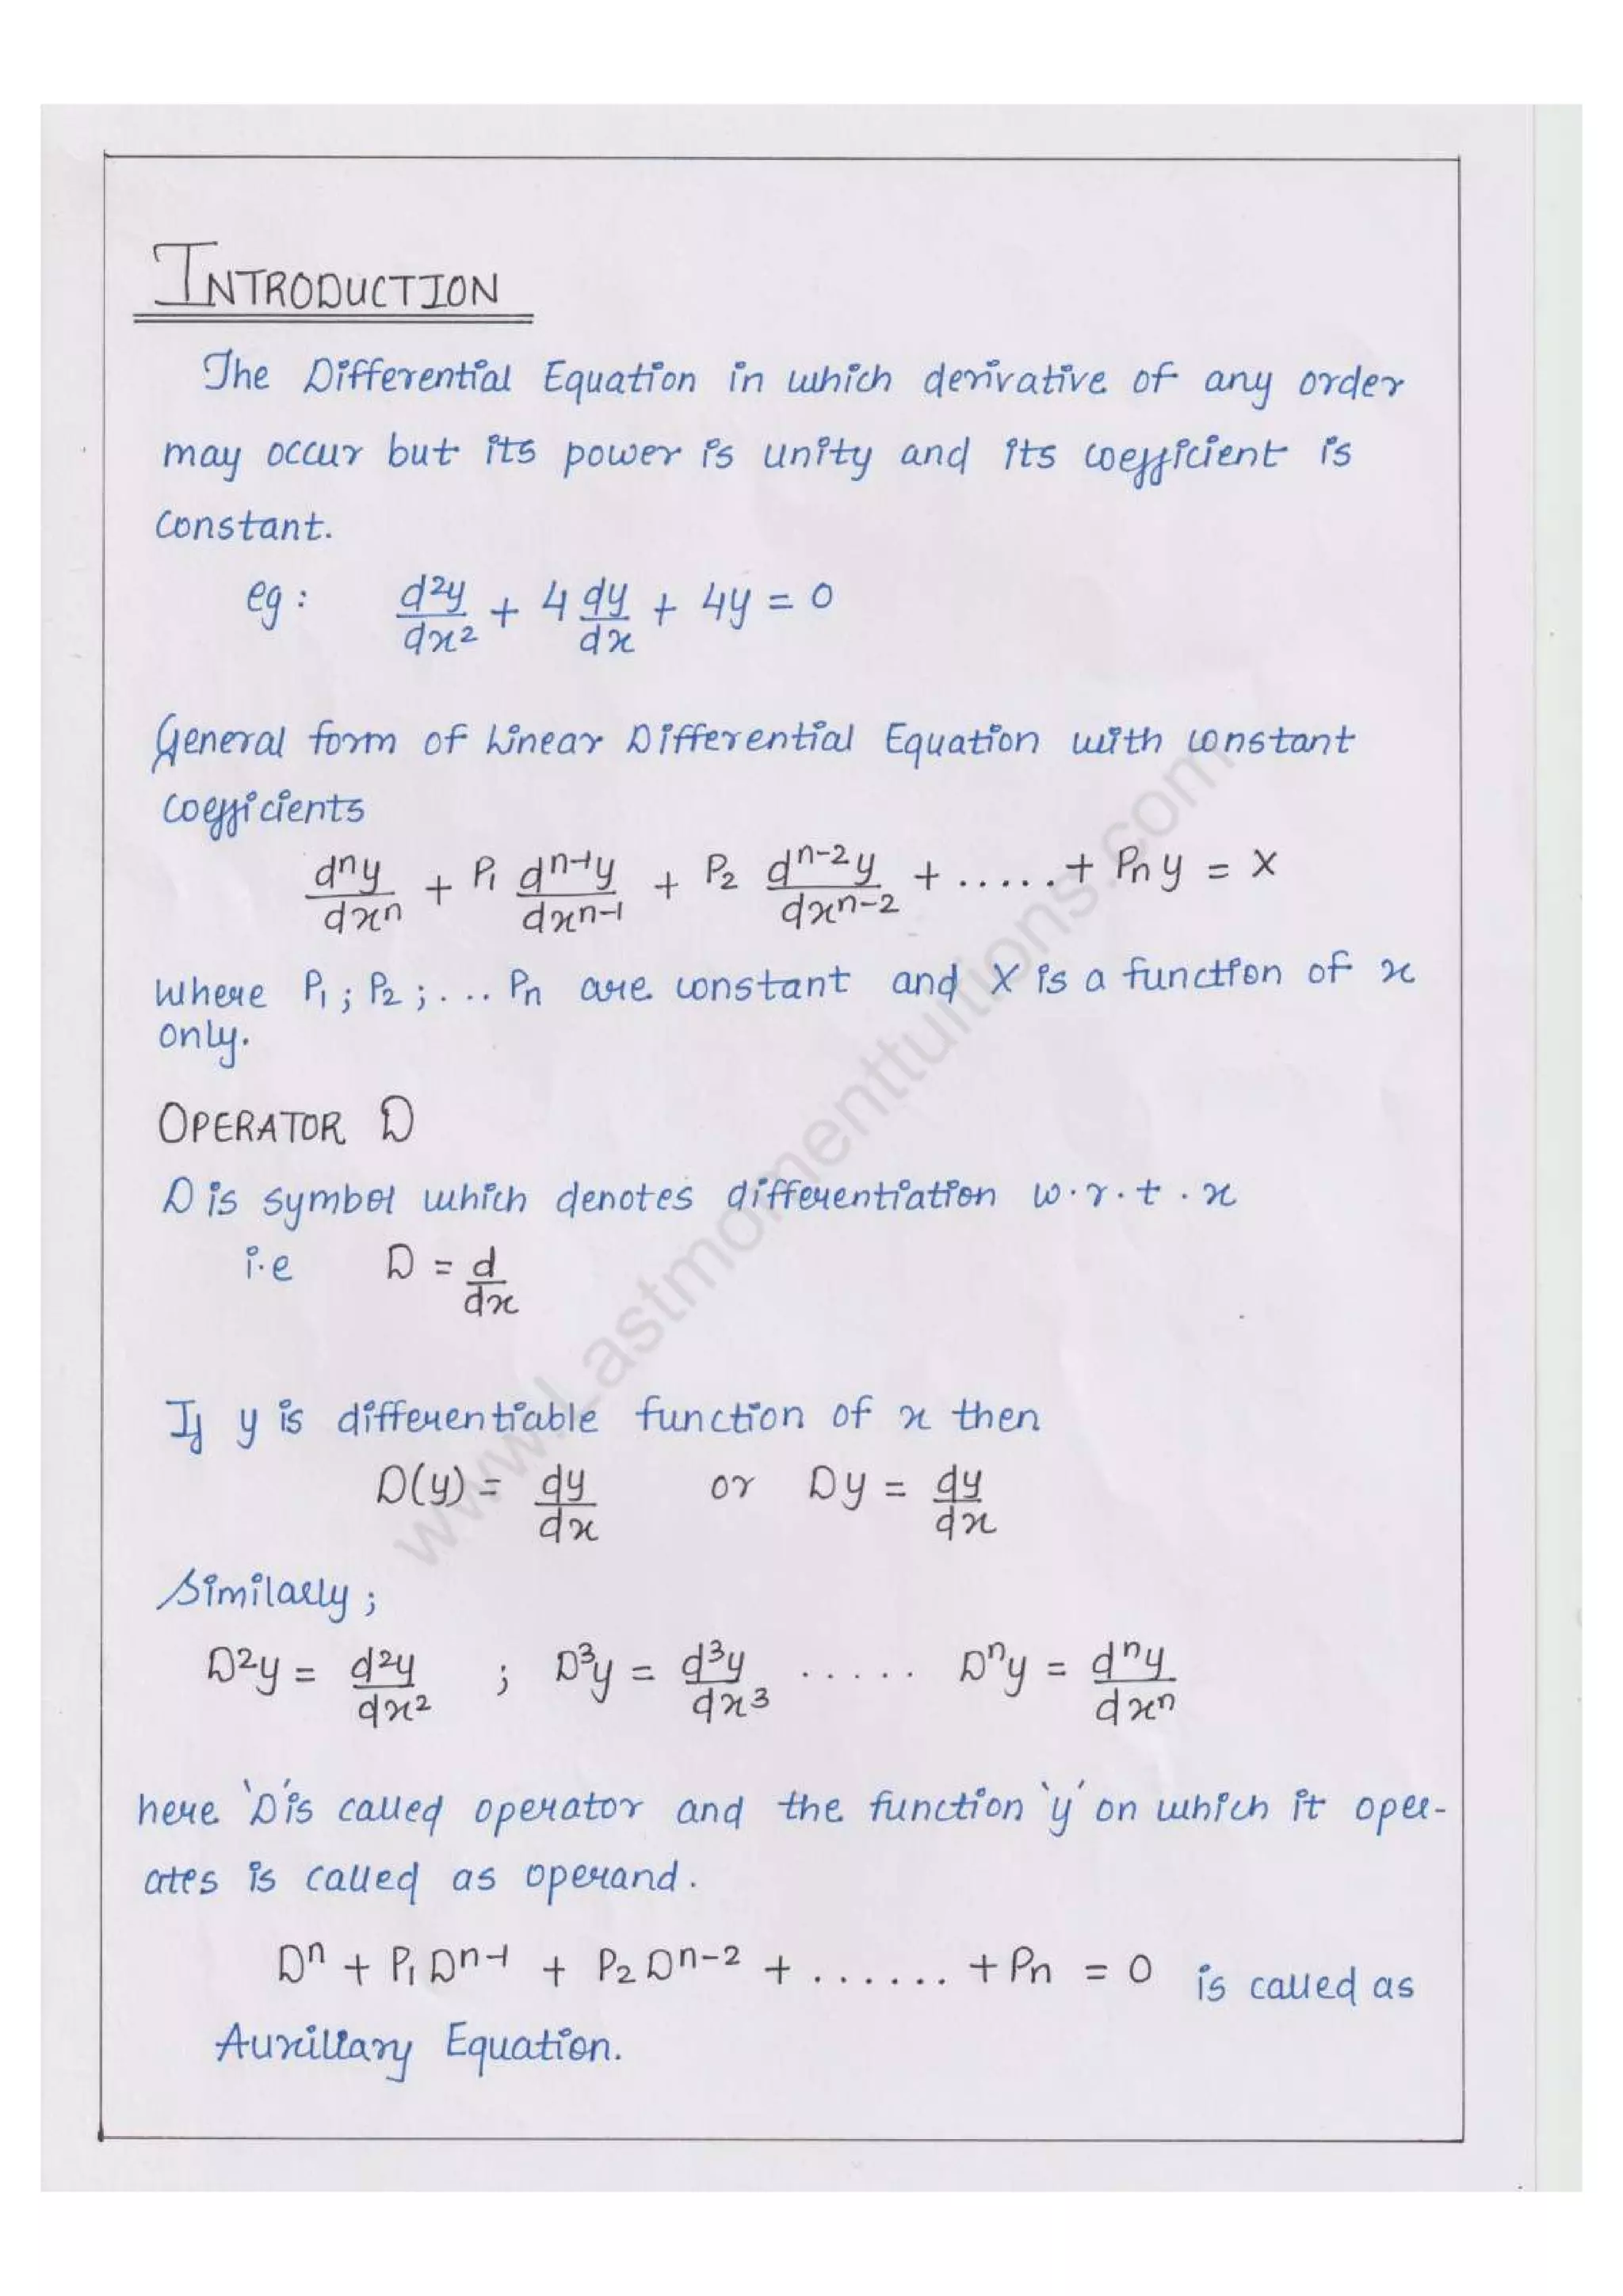 INTRODUCTION
The Differential Equation in which derivative of any order
may occur but its power is unity and its coefficient is
constant.
eg : d²y/dx² + 4 dy/dx + 4y = 0
General form of Linear Differential Equation with constant
coefficients
dⁿy/dxⁿ + P₁ dⁿ⁻¹y/dxⁿ⁻¹ + P₂ dⁿ⁻²y/dxⁿ⁻² + ..... + Pₙ y = X
where P₁ ; P₂ ; ... Pₙ are constant and X is a function of x
only.
OPERATOR D
D is symbol which denotes differentiation w.r.t. x
i.e D = d/dx
If y is differentiable function of x then
D(y) = dy/dx or Dy = dy/dx
Similarly ;
D²y = d²y/dx² ; D³y = d³y/dx³ ..... Dⁿy = dⁿy/dxⁿ
here 'D' is called operator and the function 'y' on which it oper-
ates is called as operand.
Dⁿ + P₁Dⁿ⁻¹ + P₂Dⁿ⁻² + ...... + Pₙ = 0 is called as
Auxillary Equation.
www.Lastmomenttuitions.com